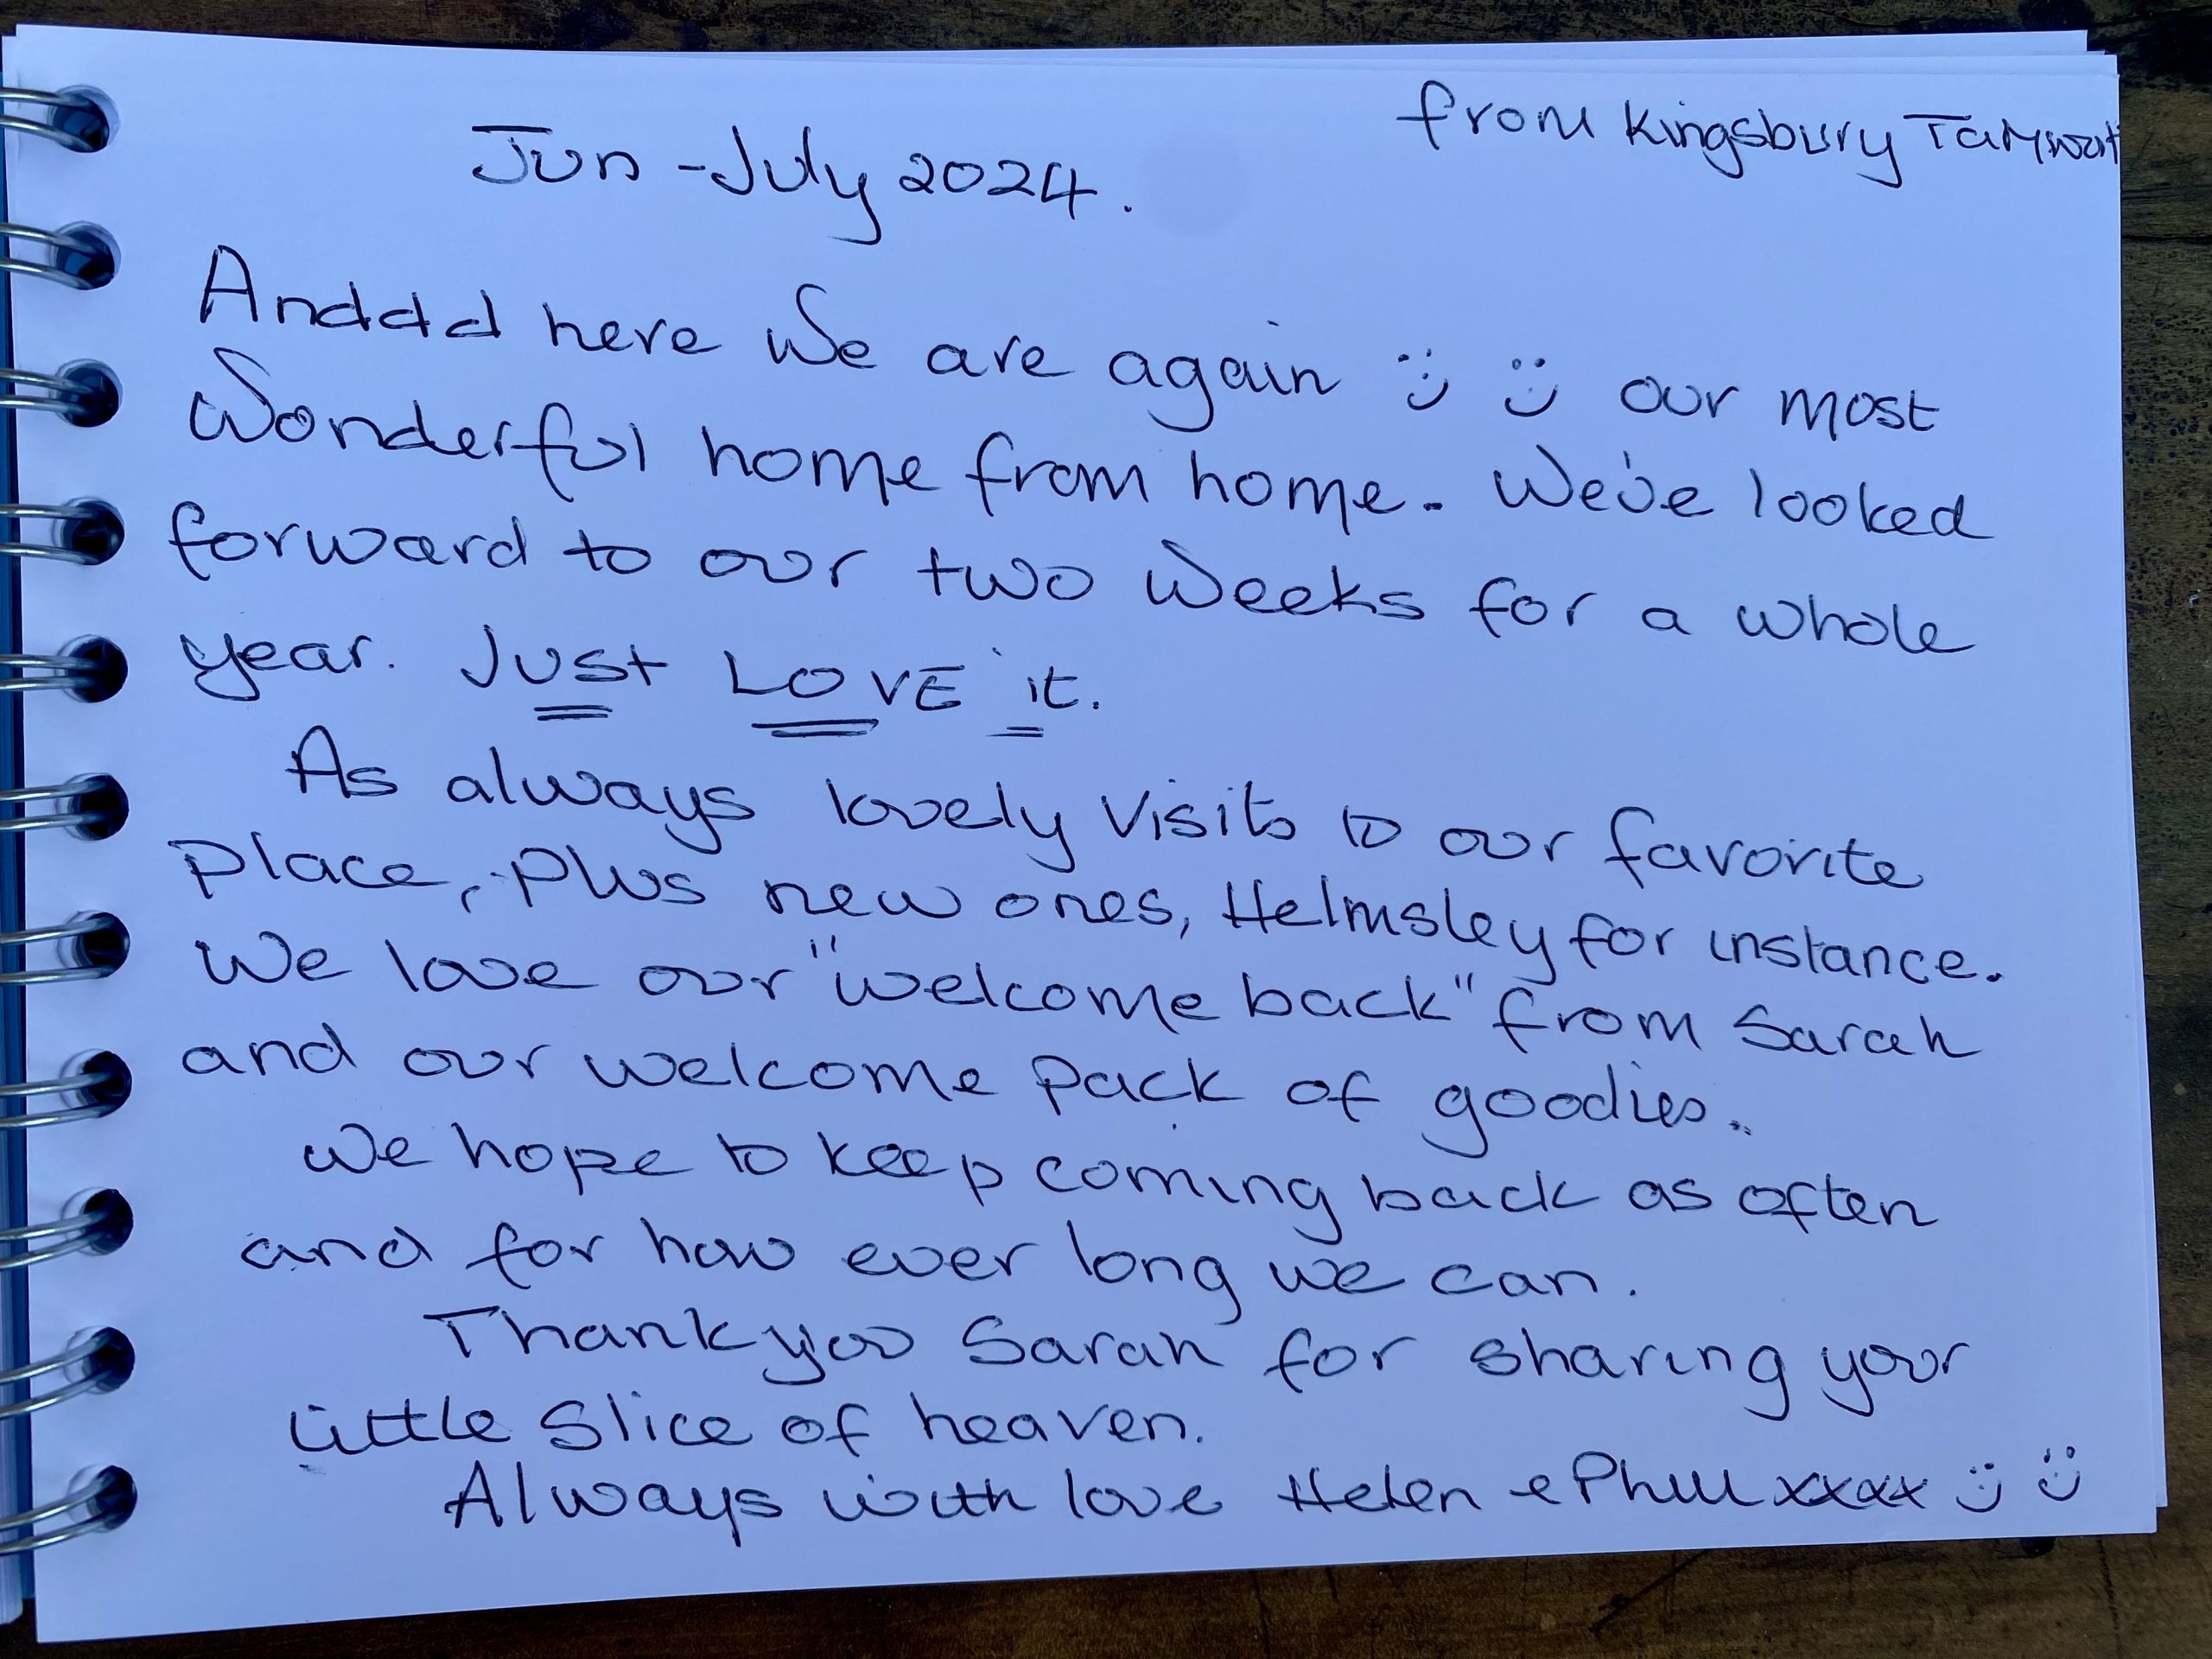 from Kingsbury Tamwort
Jun - July 2024.
Anddd here we are again :) :) our most
wonderful home from home. We've looked
forward to our two weeks for a whole
year. Just LOVE it.
As always lovely visits to our favorite
place, plus new ones, Helmsley for instance.
We love our "welcome back" from Sarah
and our welcome pack of goodies..
We hope to keep coming back as often
and for how ever long we can.
Thank you Sarah for sharing your
little slice of heaven.
Always with love Helen & Phill xxxx :) :)